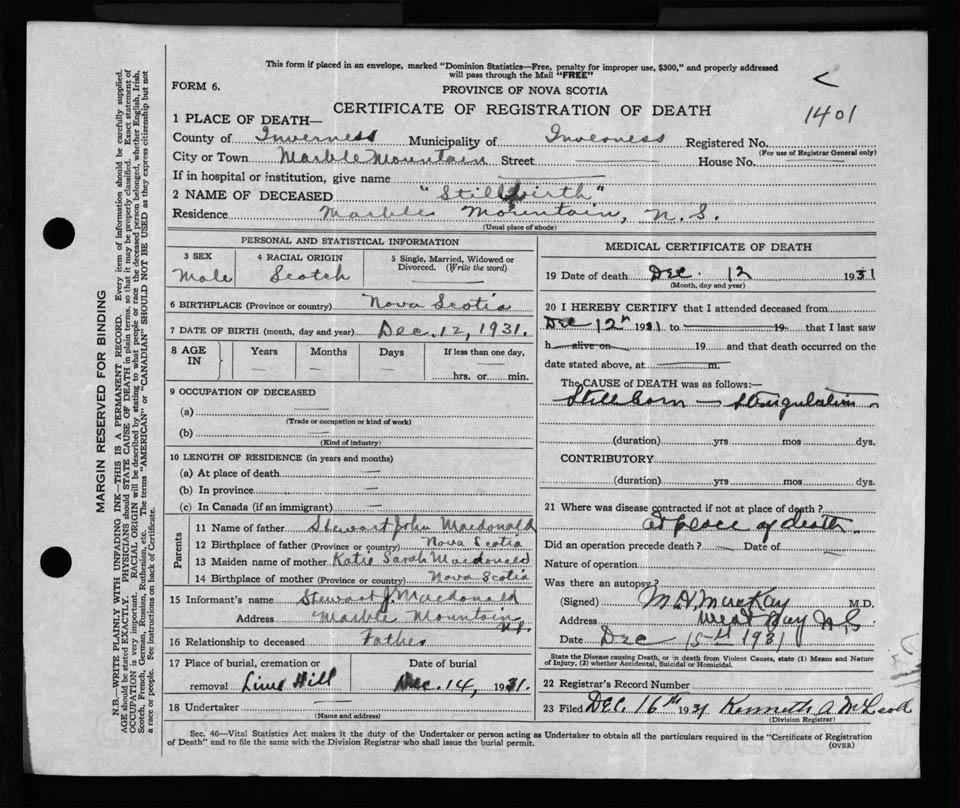 This form if placed in an envelope, marked "Dominion Statistics—Free, penalty for improper use, $300," and properly addressed
will pass through the Mail "FREE"
FORM 6.
PROVINCE OF NOVA SCOTIA
CERTIFICATE OF REGISTRATION OF DEATH
1401
1 PLACE OF DEATH—
County of Inverness Municipality of Inverness Registered No.
(For use of Registrar General only)
City or Town Marble Mountain Street House No.
If in hospital or institution, give name
2 NAME OF DECEASED "Stillbirth"
Residence Marble Mountain, N.S.
(Usual place of abode)
PERSONAL AND STATISTICAL INFORMATION
3 SEX 4 RACIAL ORIGIN 5 Single, Married, Widowed or
Divorced. (Write the word)
Male Scotch
6 BIRTHPLACE (Province or country) Nova Scotia
7 DATE OF BIRTH (month, day and year) Dec. 12, 1931.
8 AGE IN Years Months Days If less than one day,
hrs. or min.
9 OCCUPATION OF DECEASED
(a)
(Trade or occupation or kind of work)
(b)
(Kind of industry)
10 LENGTH OF RESIDENCE (in years and months)
(a) At place of death
(b) In province
(c) In Canada (if an immigrant)
Parents
11 Name of father Stewart John Macdonald
12 Birthplace of father (Province or country) Nova Scotia
13 Maiden name of mother Katie Sarah Macdonald
14 Birthplace of mother (Province or country) Nova Scotia
15 Informant's name Stewart J. Macdonald
Address Marble Mountain N.S.
16 Relationship to deceased Father
17 Place of burial, cremation or Date of burial
removal Lime Hill Dec. 14, 1931.
18 Undertaker
(Name and address)
MEDICAL CERTIFICATE OF DEATH
19 Date of death Dec. 12 1931
(Month, day and year)
20 I HEREBY CERTIFY that I attended deceased from
Dec 12th 1931 to 19 that I last saw
h alive on 19 and that death occurred on the
date stated above, at m.
The CAUSE of DEATH was as follows:—
Stillborn — Strangulation
(duration) yrs mos dys.
CONTRIBUTORY
(duration) yrs mos dys.
21 Where was disease contracted if not at place of death?
at place of death
Did an operation precede death? Date of
Nature of operation
Was there an autopsy?
(Signed) M. D. MacKay M.D.
Address West Bay N S
Date Dec 15th 1931
State the Disease causing Death, or in death from Violent Causes, state (1) Means and Nature
of Injury, (2) whether Accidental, Suicidal or Homicidal.
22 Registrar's Record Number
23 Filed Dec. 16th 1931 Kenneth A McLeod
(Division Registrar)
Sec. 46—Vital Statistics Act makes it the duty of the Undertaker or person acting as Undertaker to obtain all the particulars required in the "Certificate of Registration
of Death" and to file the same with the Division Registrar who shall issue the burial permit.
(OVER)
MARGIN RESERVED FOR BINDING
N.B.—WRITE PLAINLY WITH UNFADING INK—THIS IS A PERMANENT RECORD. Every item of information should be carefully supplied.
AGE should be stated EXACTLY. PHYSICIANS should STATE CAUSE OF DEATH in plain terms, so that it may be properly classified. Exact statement of
OCCUPATION is very important. RACIAL ORIGIN will be described by stating to what people or race the deceased person belonged, whether English, Irish,
Scotch, French, German, Russian, Ruthenian, etc. The terms "AMERICAN" or "CANADIAN" SHOULD NOT BE USED as they express citizenship but not
a race or people. See instructions on back of Certificate.